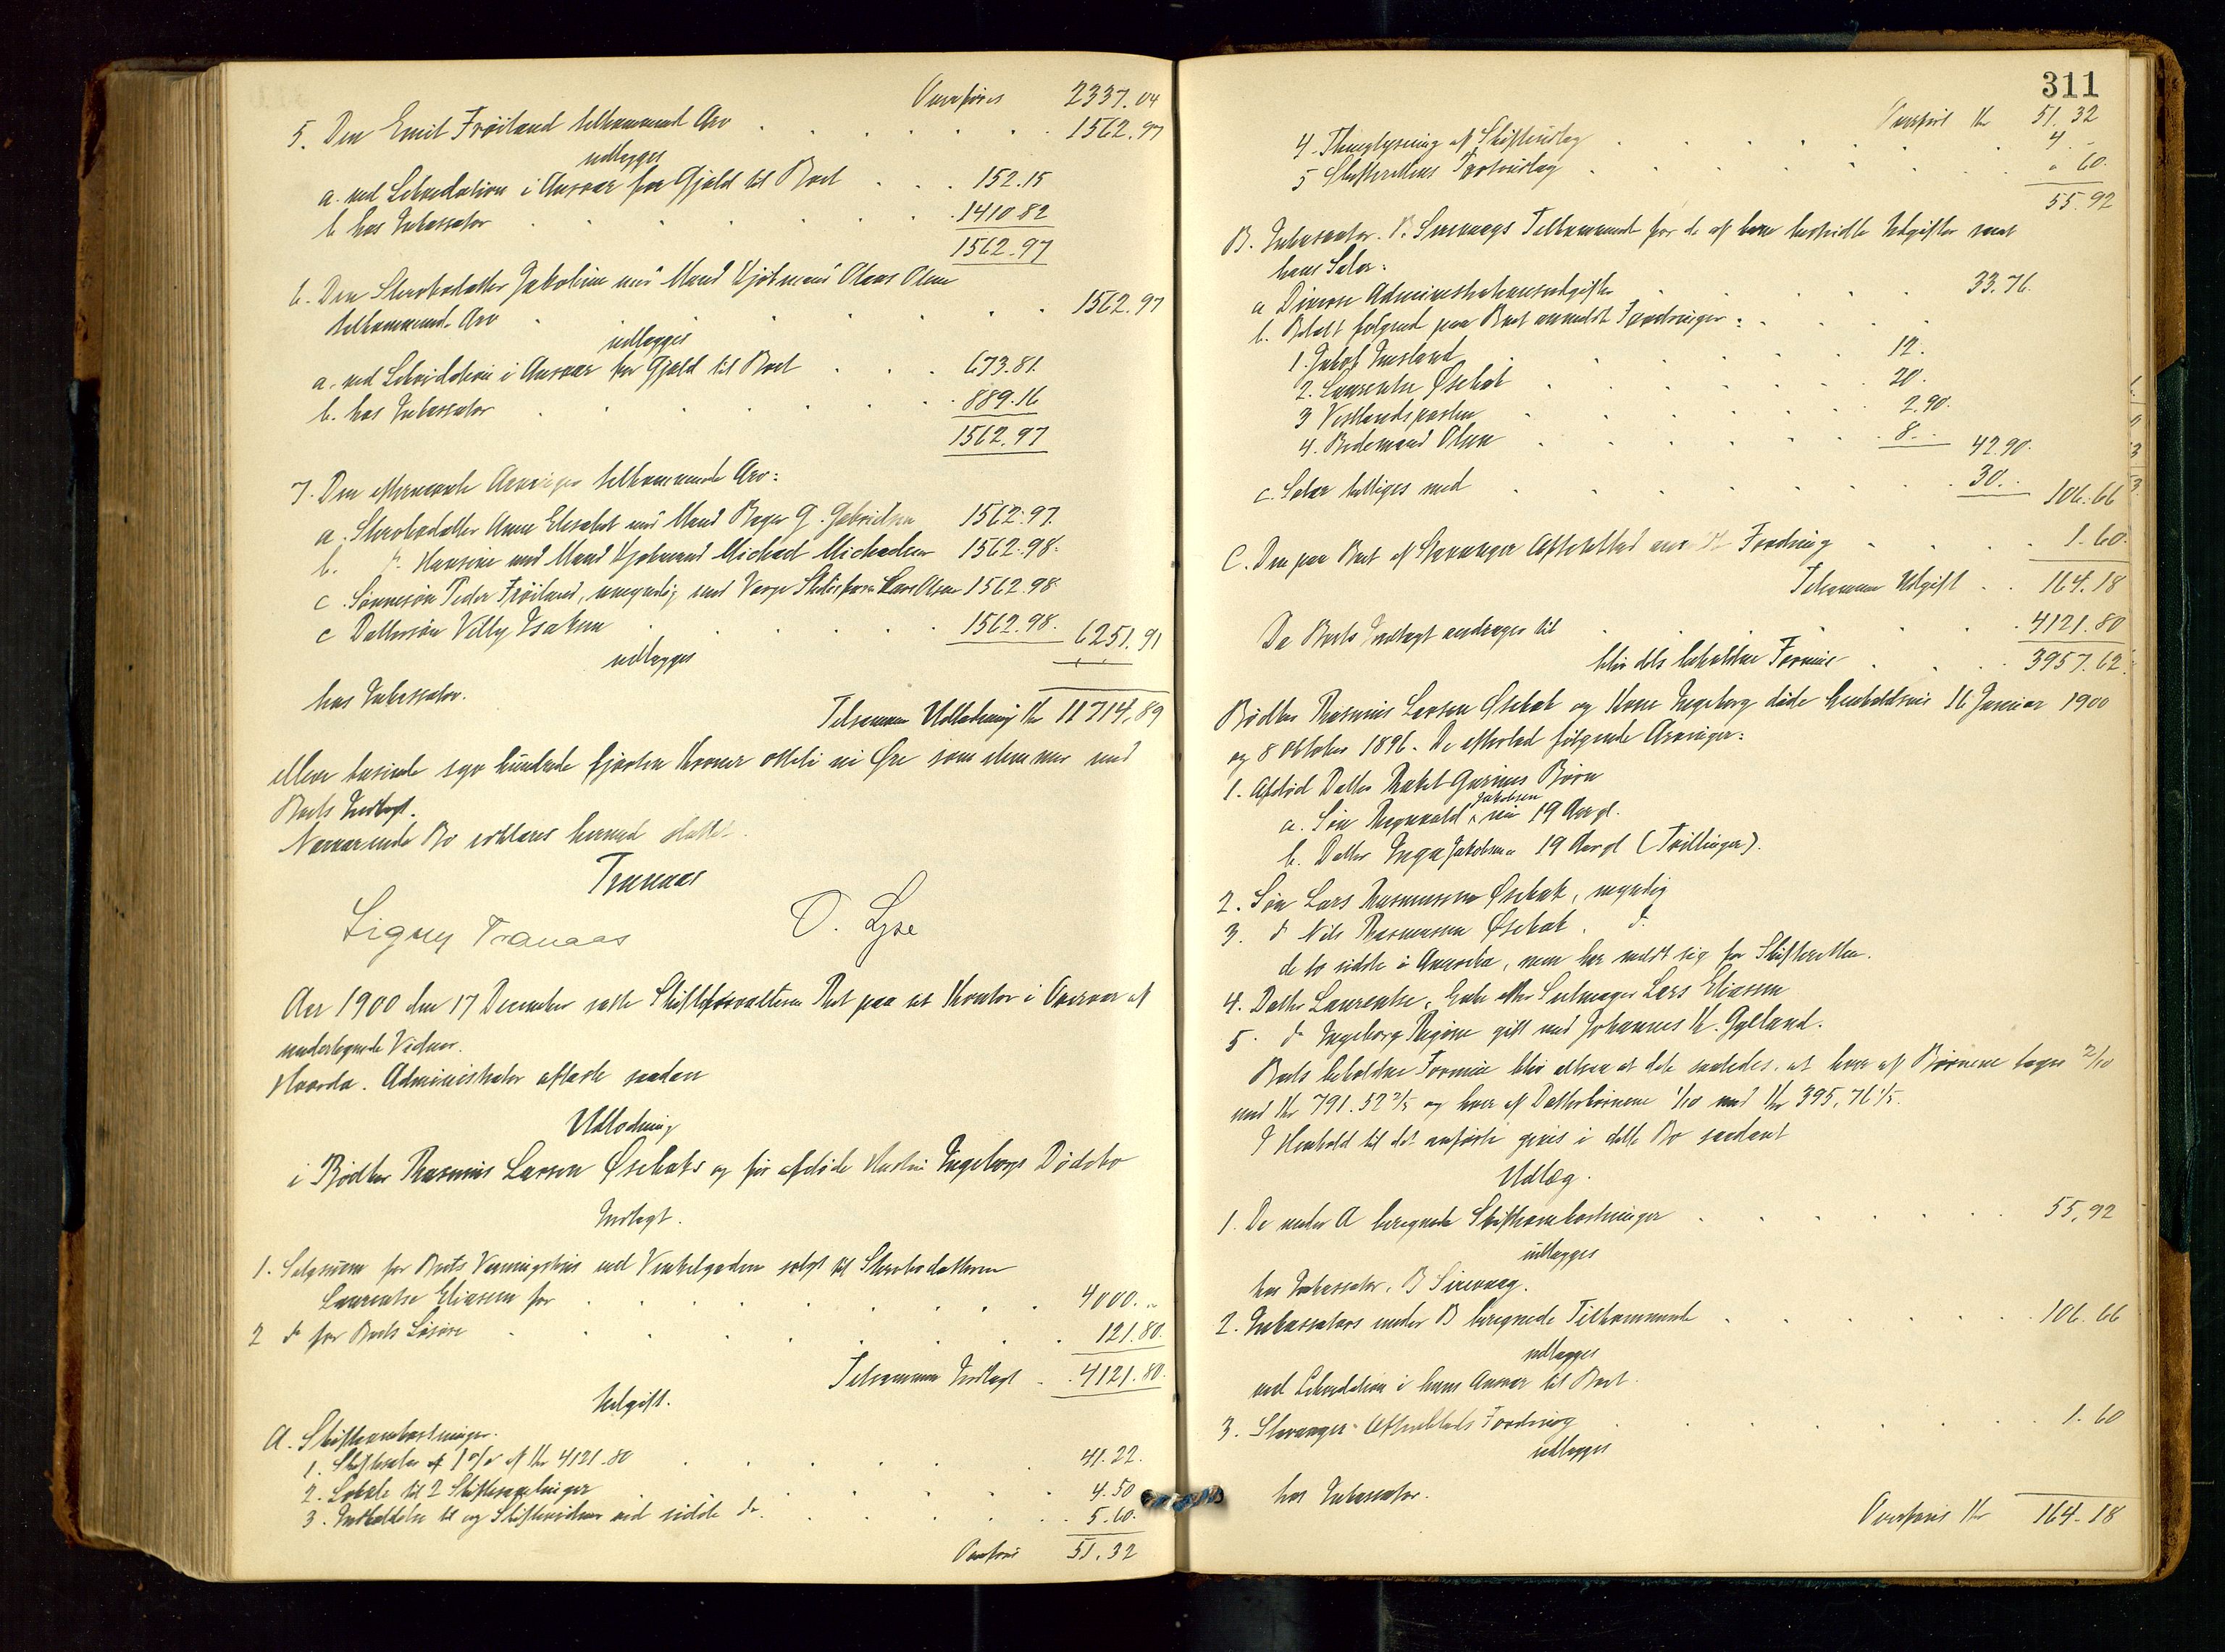 Overføres 2337.04
5. Den Emil Frøiland tilkommende Arv . . . . . . 1562.97
udlægges
a. ved Likvidation i Ansvar for Gjæld til Boet . . . 152.15
b. hos Inkassator . . . . . . . 1410 82
1562.97
6. Den Stervbodatter Jakobine med Mand Kjøbmand Olaus Olsen
tilkommende Arv . . . . . . . 1562.97
udlægges
a. ved Likvidation i Ansvar for Gjæld til Boet . . . 673.81.
b. hos Inkassator . . . . . . . 889.16
1562.97
7. Den efternævnte Arvinger tilkommende Arv:
a. Stervbodatter Anne Elisabet med Mand Bager G. Gabrielsen 1562.97.
b. Do Hansine med Mand Kjøbmand Michael Michaelsen 1562.98.
c. Sønnesøn Peder Frøiland, umyndig med Værge Lars Olsen 1562.98.
c Dattersøn Villy Isaksen . . . . . . 1562.98. 6251.91
udlægges
hos Inkassator.
Tilsammen Udlodning Kr 11714,89
elleve tusinde syv hundrede fjorten Kroner otteti ni Øre som stemmer med
Boets Indtægt.
Nærværende Bo erklæres hermed sluttet.
Tranaas
Signy Tranaas O. Lyse
Aar 1900 den 17 December satte Skifteforvalteren Ret paa sit Kontor i Overvær af
undertegnede Vidner.
Hvorda. Administrator aflagde saadan
Udlodning
i Bødker Rasmus Larsen Øsebaks og før afdøde Hustru Ingeborgs Dødsbo
Indtægt.
1. Salgssum for Boets Vaaningshus ved Vinkelgaden solgt til Stervbodatteren
Laurentse Eliassen for . . . . . . . 4000. "
2 do for Boets Løsøre . . . . . . . 121.80.
Tilsammen Indtægt . 4121.80.
Udgift.
A. Skifteomkostninger.
1. Skiftesalær af 1 o/o af Kr 4121.80 . . . . . . 41.22.
2. Lokale til 2 Skiftesamlinger . . . . . . 4.50
3. Indkaldelse til og Skiftevidner ved sidste do. . . . . . . 5.60.
Overføres 51.32
311
Overført Kr 51.32
4. Thinglysning af Skifteudlæg . . . . . . 4 "
5 Skifterettens Portoudlæg . . . . . . " 60.
55.92
B. Inkassator B. Sirevaags Tilkommende for de af ham bestridte Udgifter samt
hans Salær:
a Diverse Administrationsudgifter . . . . . 33.76.
b. Betalt følgende paa Boet anmeldte Fordringer: . . . .
1. Jakob . . . . . . 12.
2. Laurentse Øsebak . . . . . . 20.
3 Vestlandsposten . . . . . . 2.90.
4. Bedemand Olsen . . . . . . 8. " 42.90.
c. Salær billiges med . . . . . . . 30. " 106.66
C. Den paa Boet af Stavanger Aftenblad anmeldte Fordring . . . . 1.60.
Tilsammen Udgift . . 164.18
Da Boets Indtægt andrager til . . . . . . 4121.80
blir dets beholdne Formue . . . . 3957.62.
Bødker Rasmus Larsen Øsebak og Kone Ingeborg døde henholdsvis 16 Januar 1900
og 8 Oktober 1896. De efterlod følgende Arvinger:
1. Afdød Datter Rakel Gurines Børn
a. Søn Ragnvald Jakobsen, nu 19 Aar gl.
b. Datter Inga Jakobsen 19 Aar gl (Tvillinger).
2. Søn Lars Rasmussen Øsebak, myndig
3. do Nils Rasmussen Øsebak. do.
de to sidste i Amerika, men har meldt sig for Skifteretten.
4. Datter Laurentse, Enke efter Seilmager Lars Eliassen
5. do Ingeborg Regine gift med Johannes K. Gylland.
Boets beholdne Formue blir altsaa at dele saaledes, at hver af Børnene tager 2/10
med Kr 791.52 2/5 og hver af Datterbørnene 1/10 med Kr 395,76 1/5.
I Henhold til det anførte gives i dette Bo saadant
Udlæg.
1. De under A beregnede Skifteomkostninger . . . . . . 55,92
udlægges
hos Inkassator, B Sirevaag.
2. Inkassators under B beregnede Tilkommende . . . . . . 106.66
udlægges
ved Likvidation i hans Ansvar til Boet.
3. Stavanger Aftenblads Fordring . . . . . . 1.60
udlægges
hos Inkassator.
Overføres Kr 164.18